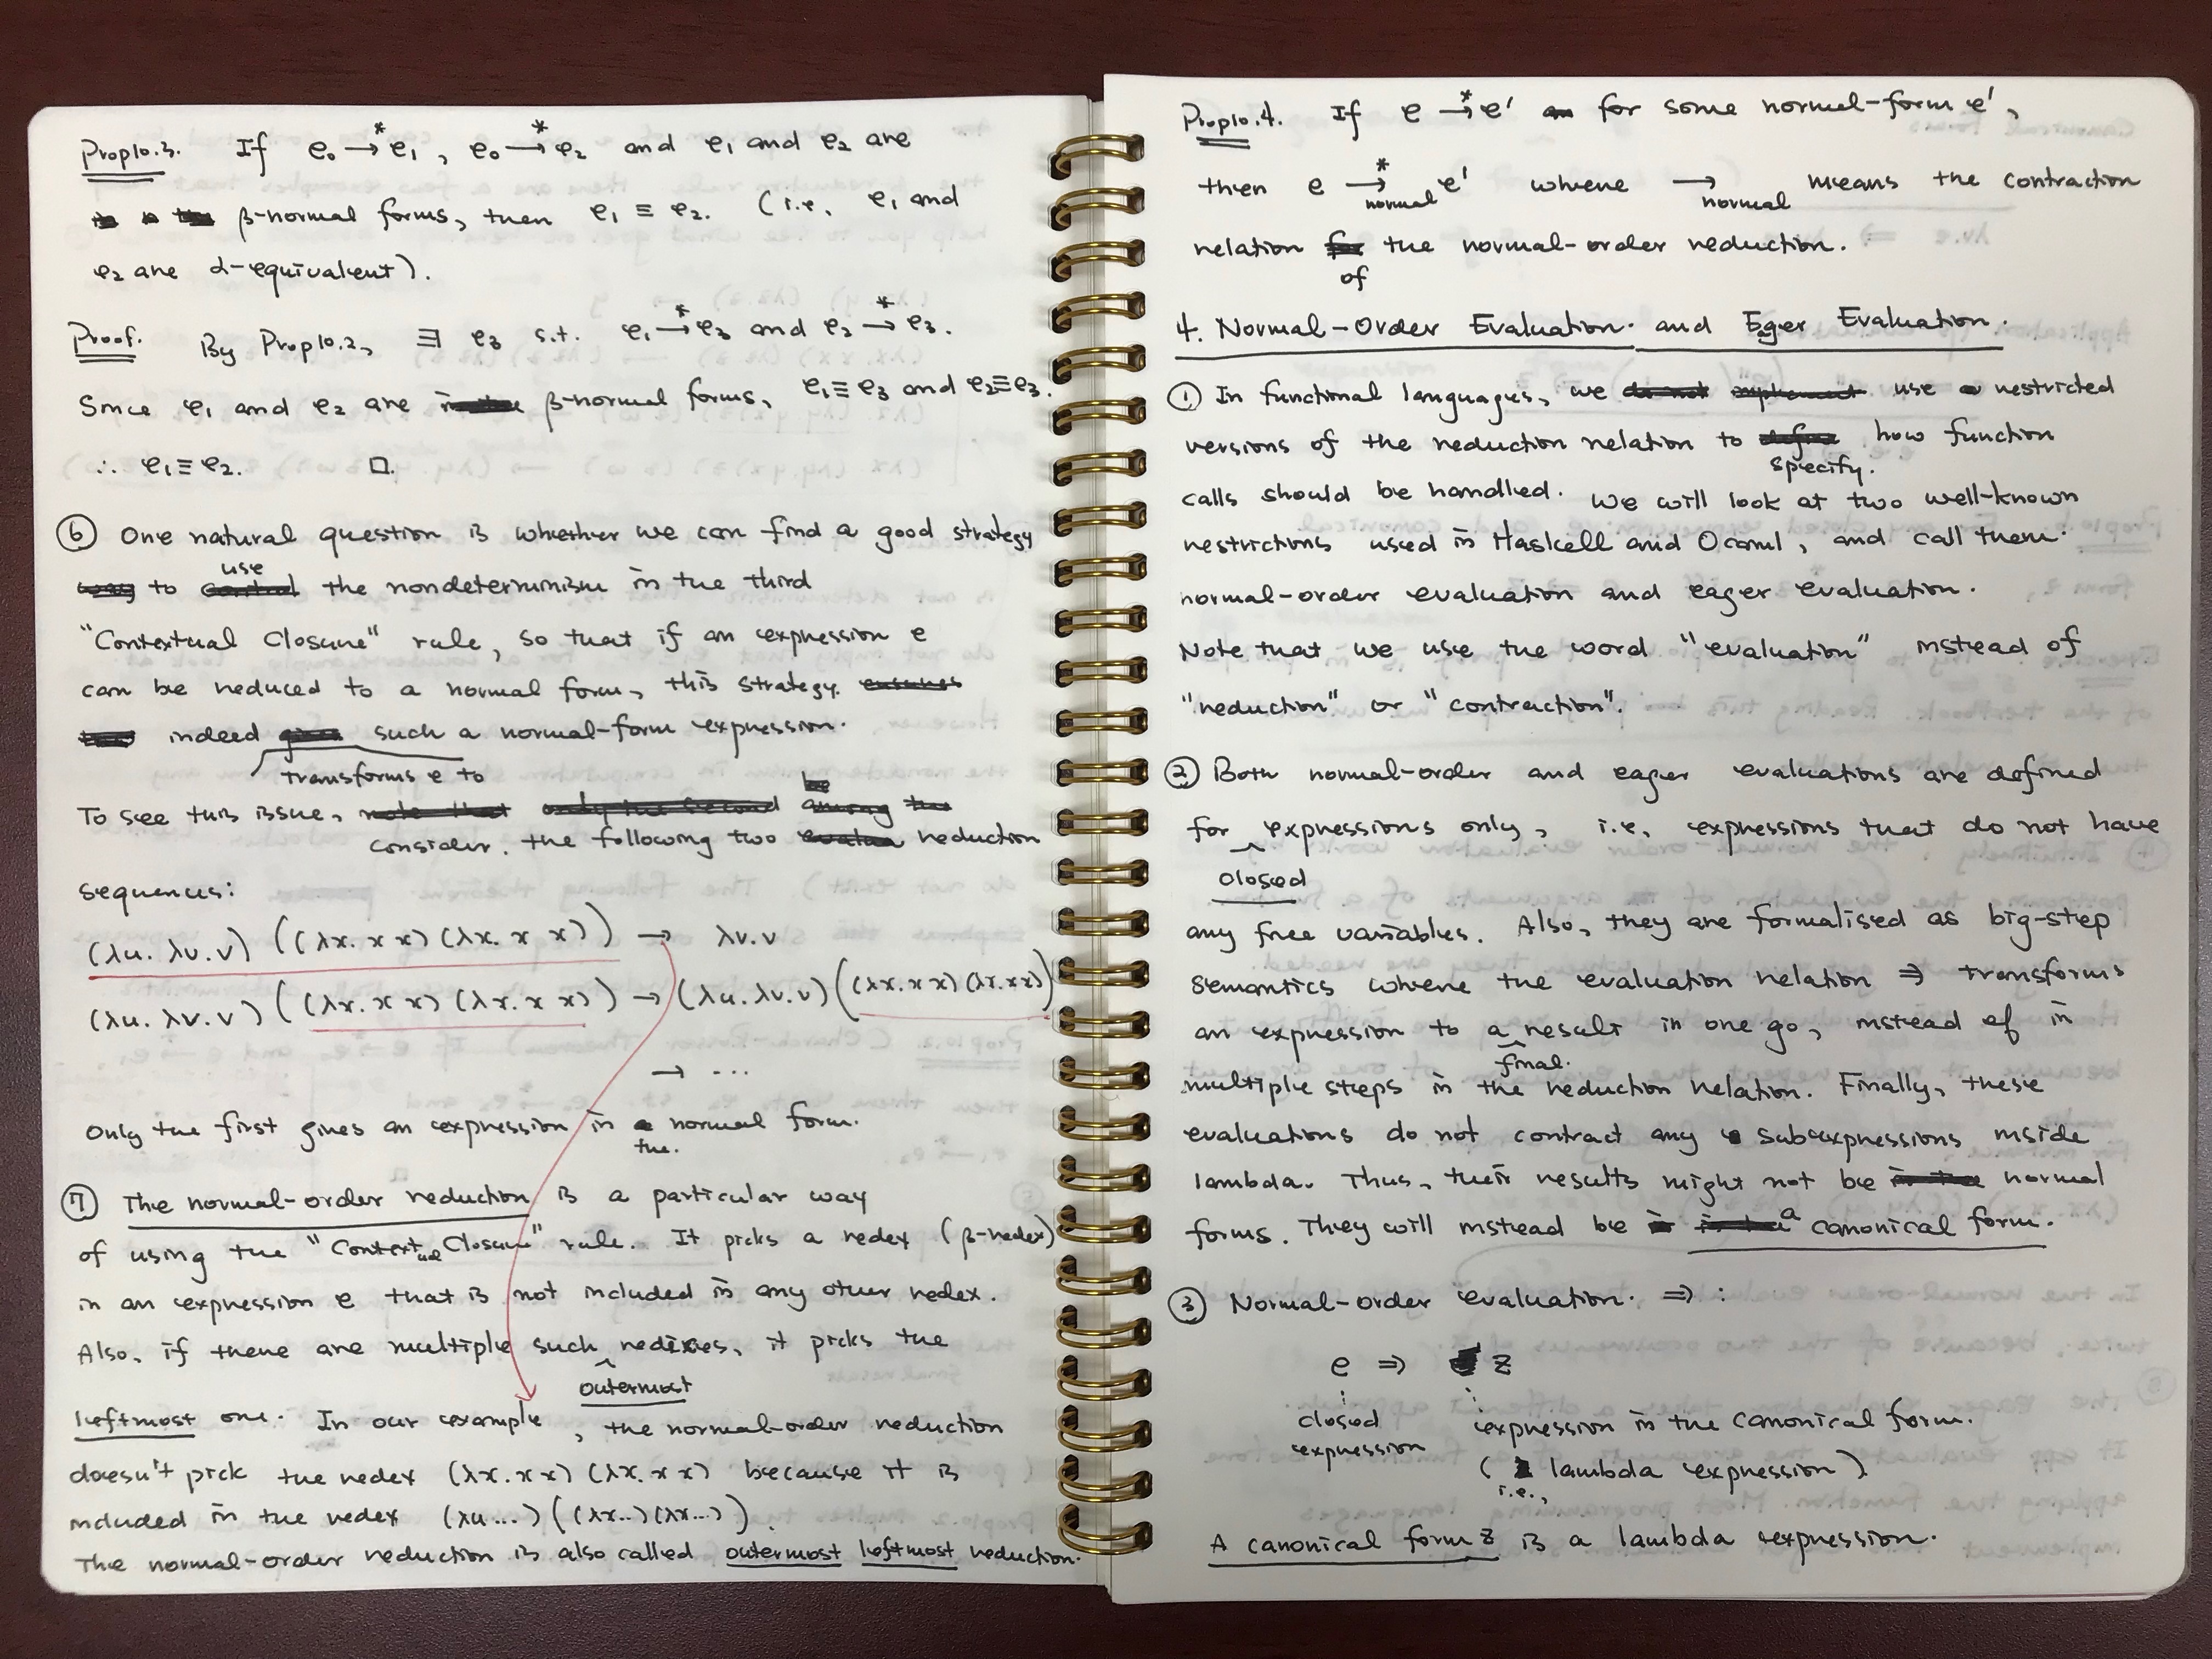 Prop10.3. If e₀ →* e₁, e₀ →* e₂ and e₁ and e₂ are
β-normal forms, then e₁ ≡ e₂. (i.e, e₁ and
e₂ are α-equivalent).
Proof. By Prop10.2, ∃ e₃ s.t. e₁ →* e₃ and e₂ →* e₃.
Since e₁ and e₂ are β-normal forms, e₁ ≡ e₃ and e₂ ≡ e₃.
∴ e₁ ≡ e₂. □.
⑥ One natural question is whether we can find a good strategy
to use the nondeterminism in the third
"Contextual Closure" rule, so that if an expression e
can be reduced to a normal form, this strategy
indeed transforms e to such a normal-form expression.
To see this issue, consider the following two reduction
sequences:
(λu. λv.v) ((λx. x x) (λx. x x)) → λv.v
(λu. λv.v) ((λx. x x) (λx. x x)) → (λu. λv.v) ((λx. x x) (λx. x x))
→ ...
Only the first gives an expression in the normal form.
⑦ The normal-order reduction is a particular way
of using the "Contextual Closure" rule. It picks a redex (β-redex)
in an expression e that is not included in any other redex.
Also, if there are multiple such outermost redexes, it picks the
leftmost one. In our example, the normal-order reduction
doesn't pick the redex (λx. x x) (λx. x x) because it is
included in the redex (λu...) ((λx..) (λx...)).
The normal-order reduction is also called outermost leftmost reduction.
Prop10.4. If e →* e' for some normal-form e',
then e →*normal e' where →normal means the contraction
relation of the normal-order reduction.
4. Normal-Order Evaluation. and Eger Evaluation.
① In functional languages, we use restricted
versions of the reduction relation to specify. how function
calls should be handled. We will look at two well-known
restrictions used in Haskell and Ocaml, and call them.
normal-order evaluation and eager evaluation.
Note that we use the word "evaluation" instead of
"reduction" or "contraction".
② Both normal-order and eager evaluations are defined
for closed expressions only, i.e, expressions that do not have
any free variables. Also, they are formalised as big-step
semantics where the evaluation relation ⇒ transforms
an expression to a final. result in one go, instead of in
multiple steps in the reduction relation. Finally, these
evaluations do not contract any subexpressions inside
lambda. Thus, their results might not be normal
forms. They will instead be a canonical form.
③ Normal-order evaluation. ⇒ :
e ⇒ z
closed expression in the canonical form.
expression (i.e., lambda expression)
A canonical form z is a lambda expression.